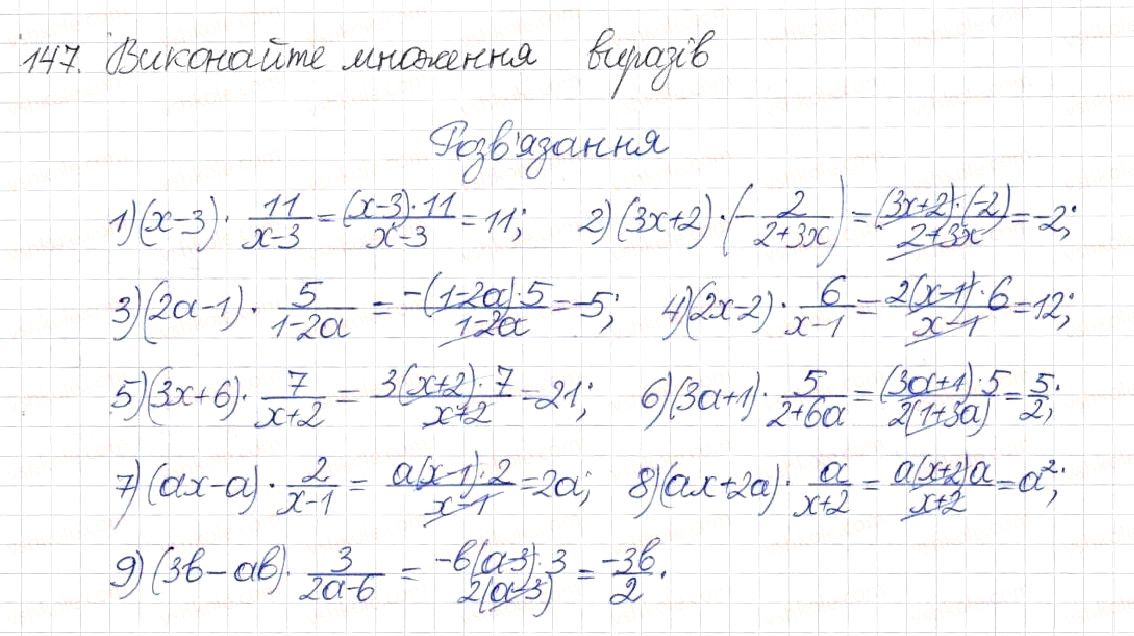 147. Виконайте множення виразів
Розв'язання
1) (x-3) · 11/(x-3) = ((x-3)·11)/(x-3) = 11; 2) (3x+2) · (-2/(2+3x)) = ((3x+2)·(-2))/(2+3x) = -2;
3) (2a-1) · 5/(1-2a) = (-(1-2a)·5)/(1-2a) = -5; 4) (2x-2) · 6/(x-1) = (2(x-1)·6)/(x-1) = 12;
5) (3x+6) · 7/(x+2) = (3(x+2)·7)/(x+2) = 21; 6) (3a+1) · 5/(2+6a) = ((3a+1)·5)/(2(1+3a)) = 5/2;
7) (ax-a) · 2/(x-1) = (a(x-1)·2)/(x-1) = 2a; 8) (ax+2a) · a/(x+2) = (a(x+2)a)/(x+2) = a²;
9) (3b-ab) · 3/(2a-6) = (-b(a-3)·3)/(2(a-3)) = -3b/2.